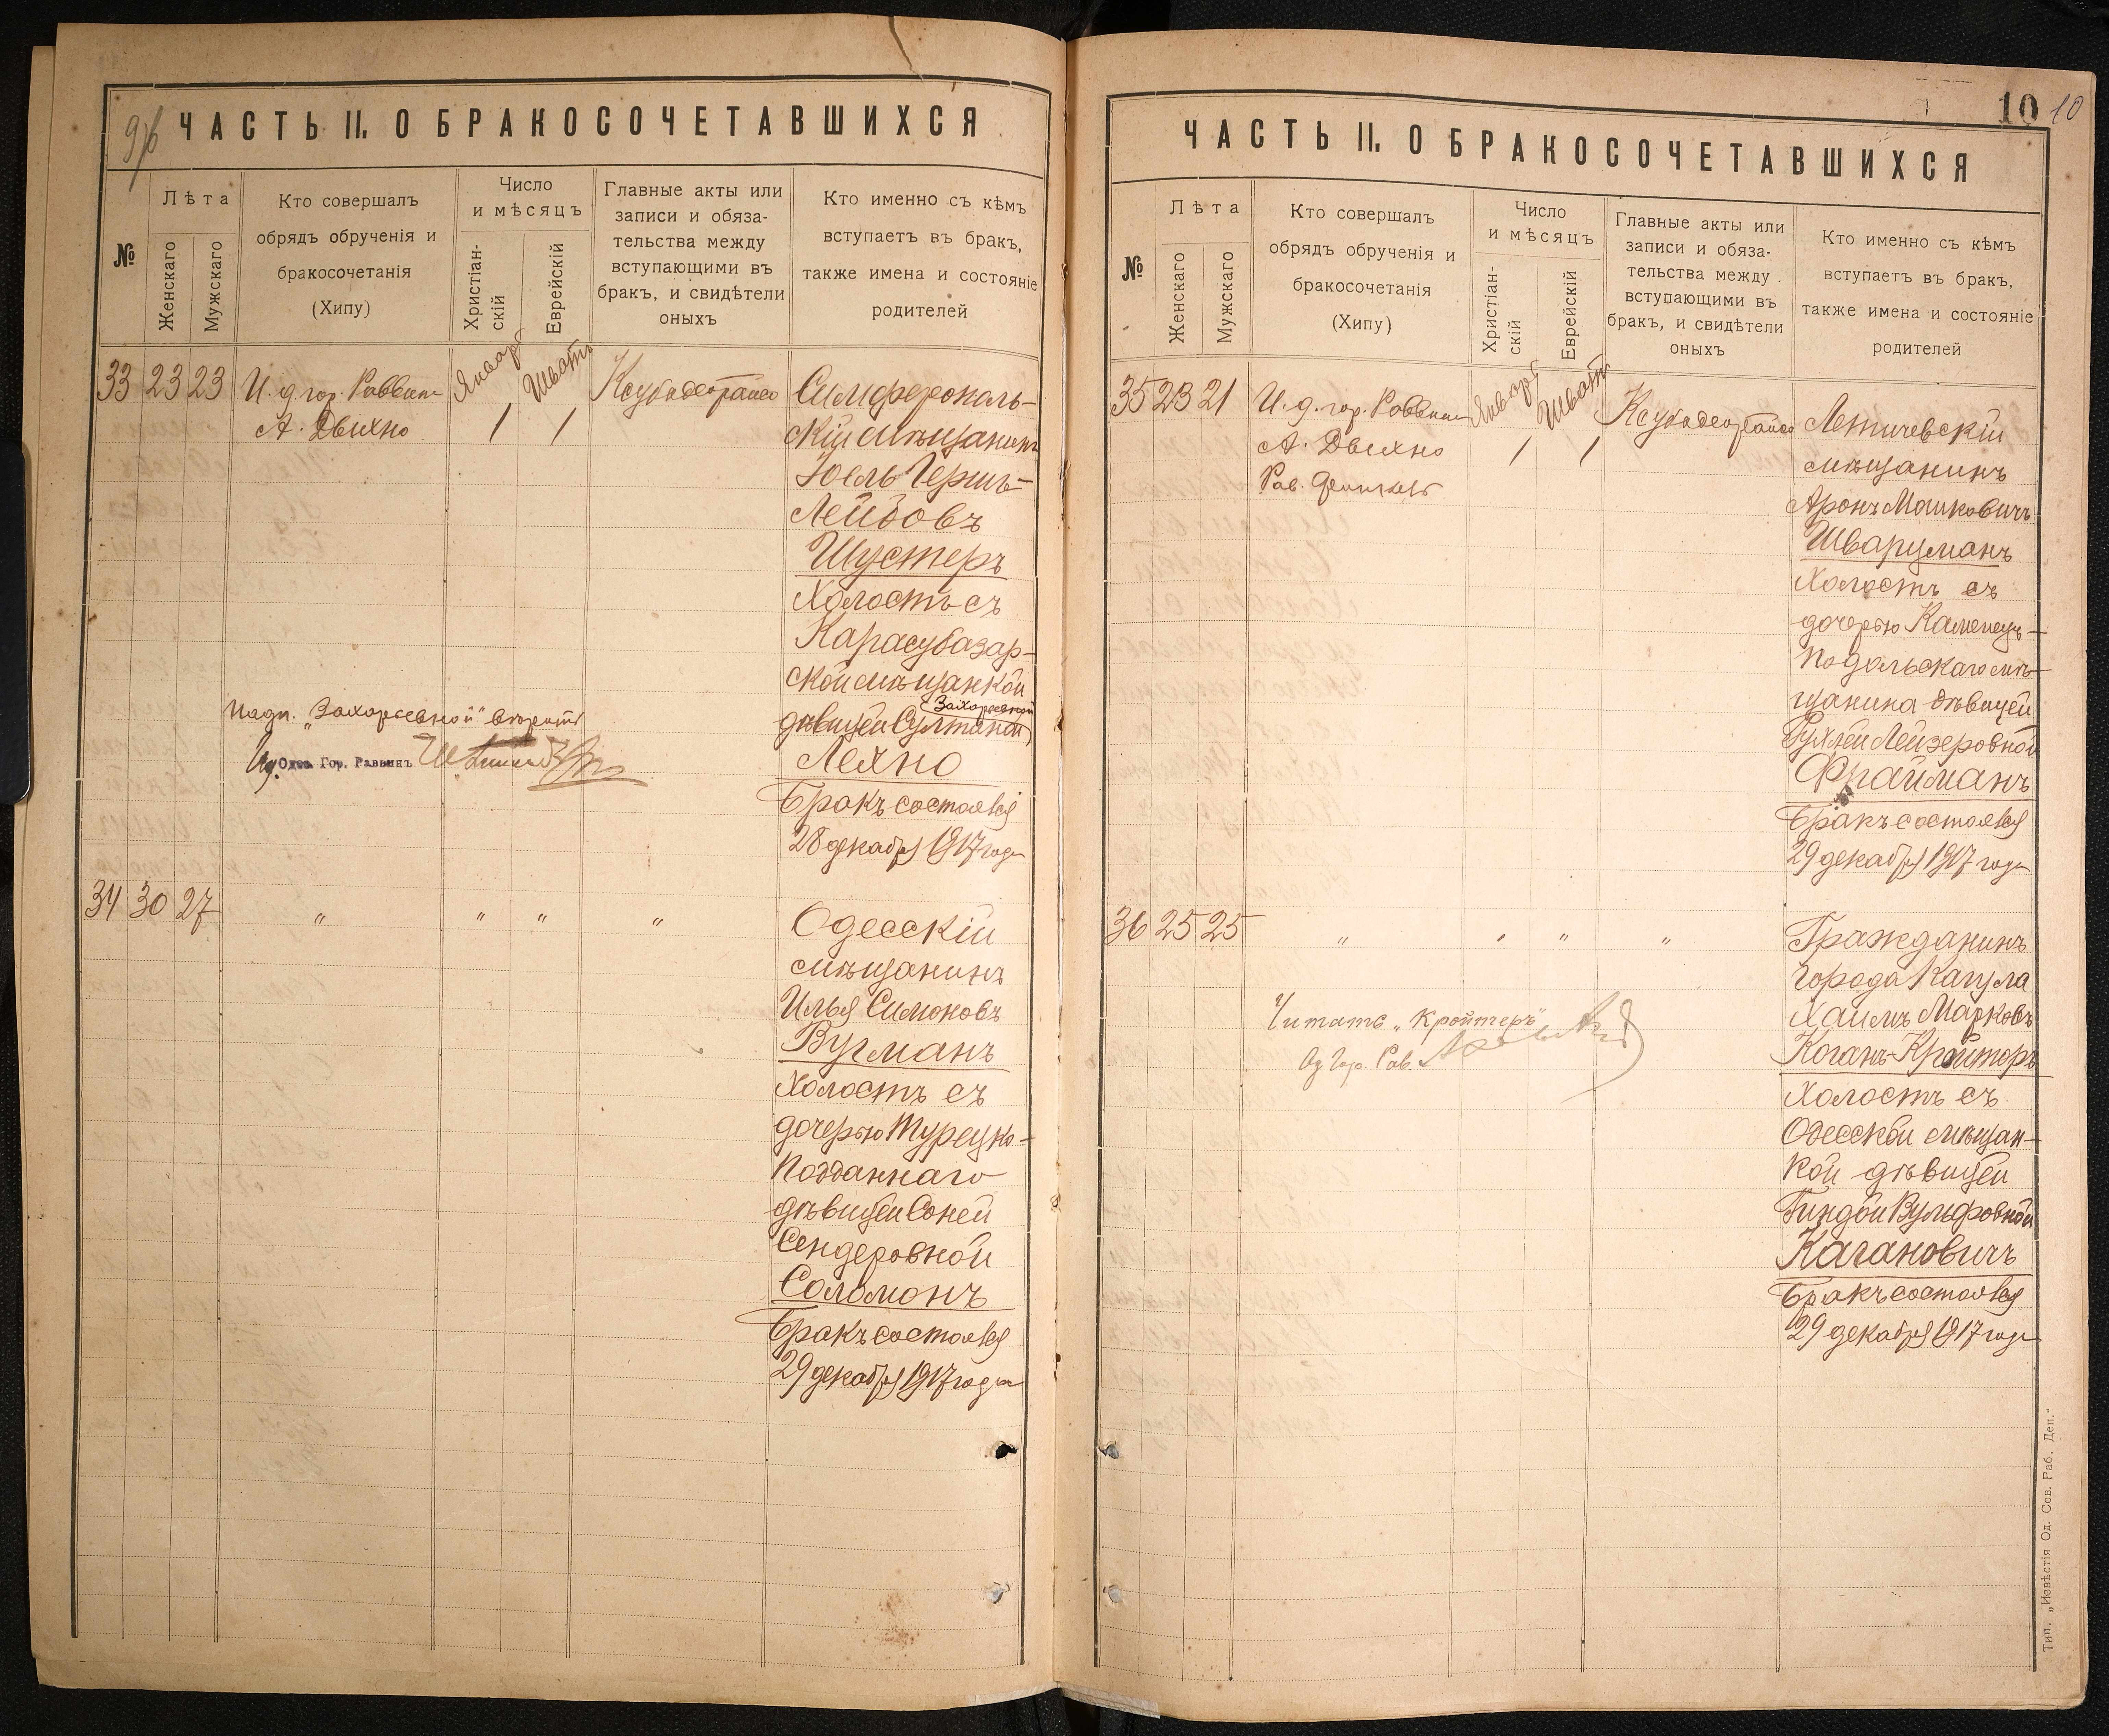 9/б
ЧАСТЬ II. О БРАКОСОЧЕТАВШИХСЯ
№
Лѣта
Женскаго
Мужскаго
Кто совершалъ
обрядъ обрученія и
бракосочетанія
(Хипу)
Число
и мѣсяцъ
Христіан-
скій
Еврейскій
Главные акты или
записи и обяза-
тельства между
вступающими въ
бракъ, и свидѣтели
оныхъ
Кто именно съ кѣмъ
вступаетъ въ бракъ,
также имена и состояніе
родителей
33 23 23
И. д. гор. Раввина
А. Двихно
Январь
1
Шватъ
1
Симферополь-
скій мѣщанинъ
Іоель Гершъ-
Лейбовъ
Шустеръ
Холостъ съ
Карасубазар-
ской мѣщанкой
Захарьевной
дѣвицей Султаной
Лехно
Бракъ состоялся
28 декабря 1917 года
Надп. „Захарьевной" вѣрить
И. д. Одес. Гор. Раввинъ
34 30 27
" " " "
Одесскій
мѣщанинъ
Илья Симоновъ
Вугманъ
Холостъ съ
дочерью Турецко-
подданнаго
дѣвицей Соней
Сендеровной
Соломонъ
Бракъ состоялся
29 декабря 1917 года
10 10
ЧАСТЬ II. О БРАКОСОЧЕТАВШИХСЯ
№
Лѣта
Женскаго
Мужскаго
Кто совершалъ
обрядъ обрученія и
бракосочетанія
(Хипу)
Число
и мѣсяцъ
Христіан-
скій
Еврейскій
Главные акты или
записи и обяза-
тельства между
вступающими въ
бракъ, и свидѣтели
оныхъ
Кто именно съ кѣмъ
вступаетъ въ бракъ,
также имена и состояніе
родителей
35 23 21
И. д. гор. Раввина
А. Двихно
Рав.
Январь
1
Шватъ
1
Летичевскій
мѣщанинъ
Аронъ Машковичъ
Шварцманъ
Холостъ съ
дочерью Каменецъ-
Подольскаго мѣ-
щанина дѣвицей
Рухлей Лейзеровной
Фрайманъ
Бракъ состоялся
29 декабря 1917 года
36 25 25
" " " "
Гражданинъ
города Кагула
Хаимъ Марковъ
Коганъ-Крайторъ
Холостъ съ
Одесской мѣщан-
кой дѣвицей
Гиндой Вульфовной
Кагановичъ
Бракъ состоялся
29 декабря 1917 года
Читать „Кройтеръ"
Од. Гор. Рав.
Тип. „Извѣстія Од. Сов. Раб. Деп."